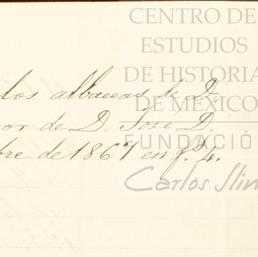 CENTRO DE
ESTUDIOS
DE HISTORIA
DE MÉXICO
FUNDACIÓ
Carlos Slim
los albaceas de D.
or de D. José D.
bre de 1867 en f. 4.